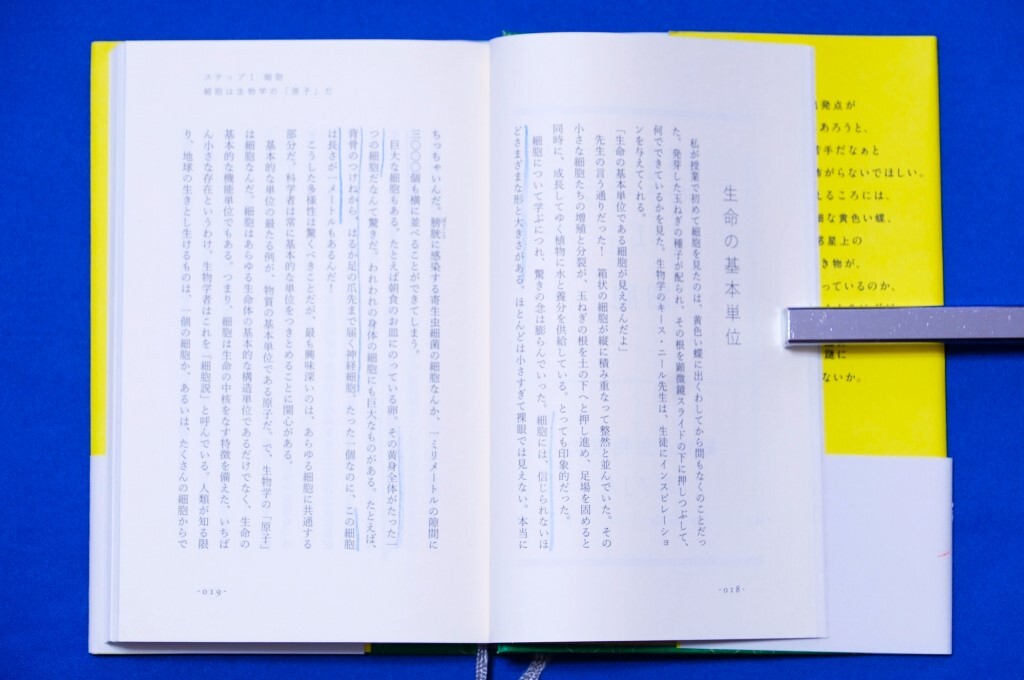 生命の基本単位
私が授業で初めて細胞を見たのは、黄色い蝶に出くわしてから間もなくのことだっ
た。発芽した玉ねぎの種子が配られ、その根を顕微鏡スライドの下に押しつぶして、
何でできているかを見た。生物学のキース・ニール先生は、生徒にインスピレーショ
ンを与えてくれる。
「生命の基本単位である細胞が見えるんだよ」
先生の言う通りだった！　箱状の細胞が縦に積み重なって整然と並んでいた。その
小さな細胞たちの増殖と分裂が、玉ねぎの根を土の下へと押し進め、足場を固めると
同時に、成長してゆく植物に水と養分を供給している。とっても印象的だった。
細胞について学ぶにつれ、驚きの念は膨らんでいった。細胞には、信じられないほ
どさまざまな形と大きさがある。ほとんどは小さすぎて裸眼では見えない。本当に
-018-
ステップ1 細胞
細胞は生物学の「原子」だ
ちっちゃいんだ。膀胱に感染する寄生虫細菌の細胞なんか、一ミリメートルの隙間に
三〇〇〇個も横に並べることができてしまう。
巨大な細胞もある。たとえば朝食のお皿にのっている卵。その黄身全体がたった一
つの細胞だなんて驚きだ。われわれの身体の細胞にも巨大なものがある。たとえば、
背骨のつけねから、はるか足の爪先まで届く神経細胞。たった一個なのに、この細胞
は長さが一メートルもあるんだ！
こうした多様性は驚くべきことだが、最も興味深いのは、あらゆる細胞に共通する
部分だ。科学者は常に基本的な単位をつきとめることに関心がある。
基本的な単位の最たる例が、物質の基本単位である原子だ。で、生物学の「原子」
は細胞なんだ。細胞はあらゆる生命体の基本的な構造単位であるだけでなく、生命の
基本的な機能単位でもある。つまり、細胞は生命の中核をなす特徴を備えた、いちば
ん小さな存在というわけ。生物学者はこれを「細胞説」と呼んでいる。人類が知る限
り、地球の生きとし生けるものは、一個の細胞か、あるいは、たくさんの細胞からで
-019-
発点が
あろうと、
苦手だなぁと
がらないでほしい。
えるころには、
な黄色い蝶、
惑星上の
き物が、
っているのか、
謎に
ないか。